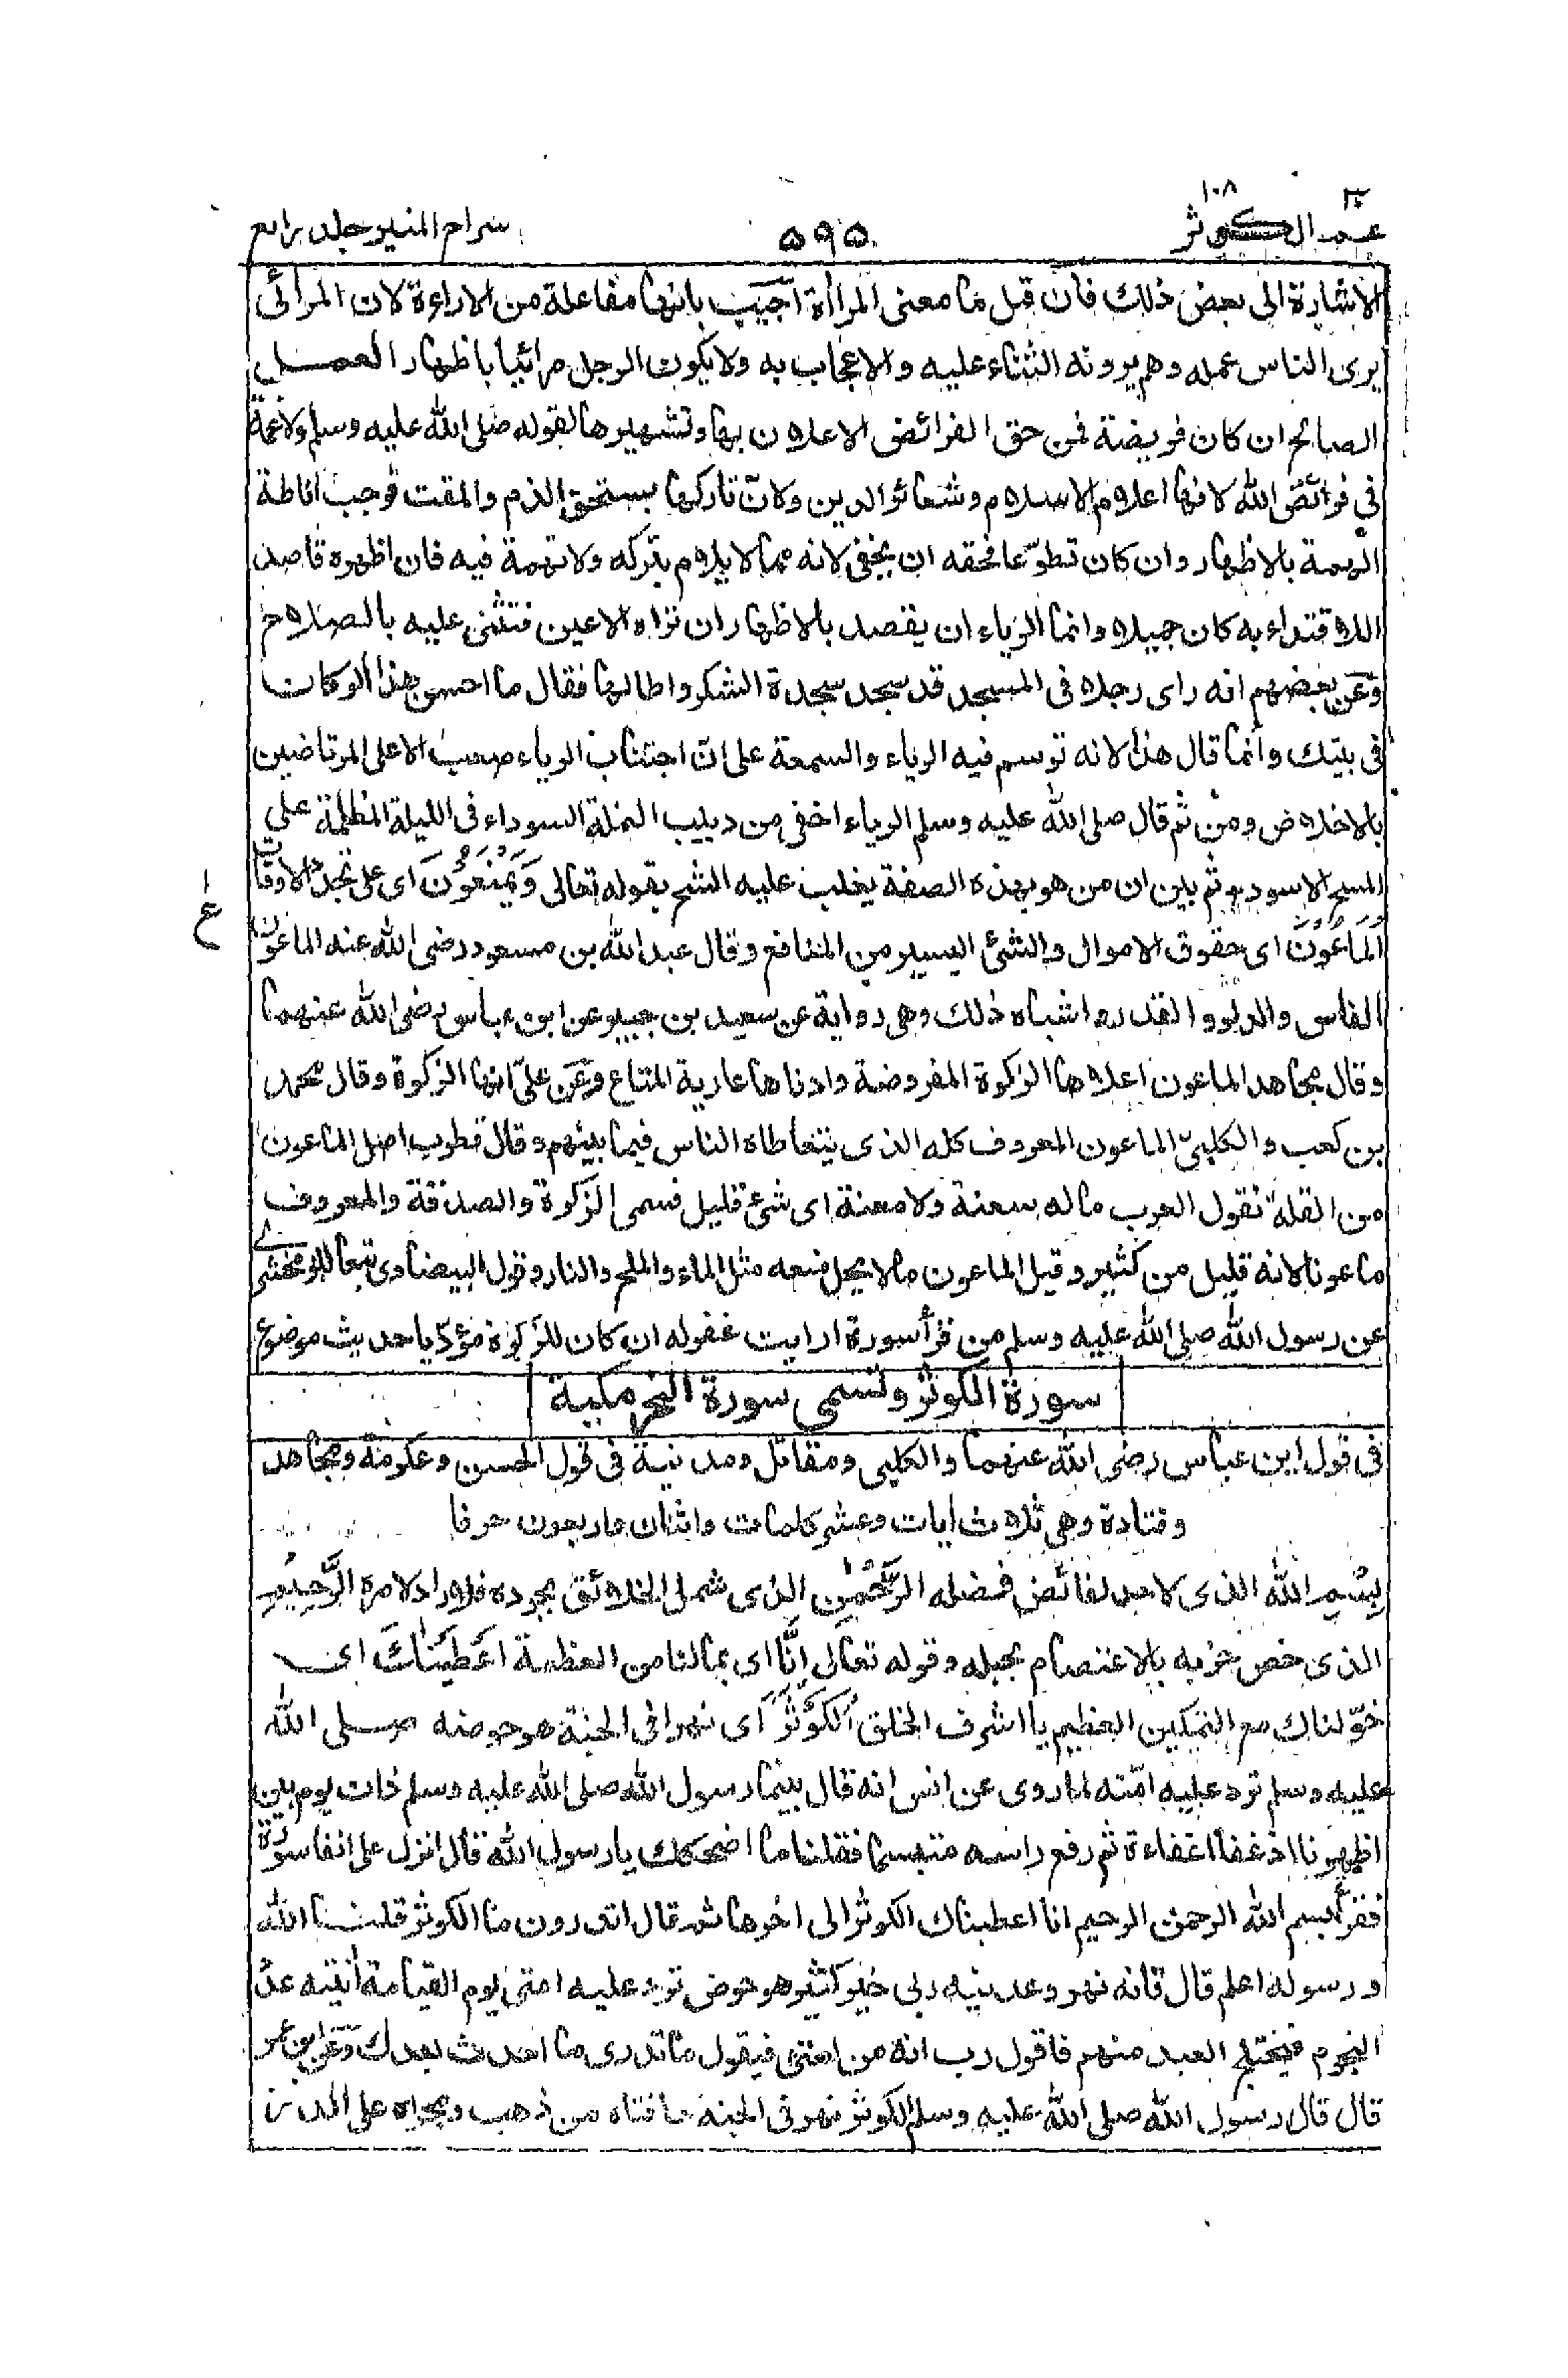 ٣٠ ١٠٨
عمـ الكوثر ٥٩٥ سراج المنير جلد رابع
الاشارة الى بعض ذلك فان قيل ما معنى المراأة اجيب بانها مفاعلة من الاراءة لان المرائى
يرى الناس عمله وهم يرونه الثناء عليه والاعجاب به ولا يكون الرجل مرائيا باظهار العمل
الصالح ان كان فريضة فمن حق الفرائض الاعلان بها وتشهيرها لقوله صلى الله عليه وسلم ولا غمة
فى فرائض الله لانها اعلام الاسلام وشعائر الدين ولان تاركها يستحق الذم والمقت فوجب اماطة
التهمة بالاظهار وان كان تطوّعا فحقه ان يخفى لانه مما لا يلام بتركه ولا تهمة فيه فان اظهره قاصد
اللاقتداء به كان جميلا وانما الرياء ان يقصد بالاظهار ان تراه الاعين فتثنى عليه بالصلاح
وعن بعضهم انه راى رجلا فى المسجد قد سجد سجدة الشكر واطالها فقال ما احسن هذا لو كان
فى بيتك وانما قال هذا لانه توسم فيه الرياء والسمعة على انّ اجتناب الرياء صعب الا على المرتاضين
بالاخلاص ومن ثم قال صلى الله عليه وسلم الرياء اخفى من دبيب النملة السوداء فى الليلة المظلمة على
المسح الاسود ثم بين ان من هو بهذه الصفة يغلب عليه الشح بقوله تعالى وَيَمْنَعُوْنَ اى على تجدد الاوقات
الْمَاعُوْنَ اى حقوق الاموال والشئ اليسير من المنافع وقال عبد الله بن مسعود رضى الله عنه الماعون
ع
الفاس والدلو والقدر واشباه ذلك وهى رواية عن سعيد بن جبير عن ابن عباس رضى الله عنهما
وقال مجاهد الماعون اعلاها الزكوة المفروضة وادناها عارية المتاع وعن علىّ انها الزكوة وقال محمد
بن كعب والكلبىّ الماعون المعروف كله الذى يتعاطاه الناس فيما بينهم وقال قطرب اصل الماعون
من القلة تقول العرب ماله سعنة ولا معنة اى شئ قليل فسمى الزكوة والصدقة والمعروف
ماعونا لانه قليل من كثير وقيل الماعون ما لا يحل منعه مثل الماء والملح والنار وقول البيضاوى تبعا للزمخشرى
عن رسول الله صلى الله عليه وسلم من قرأ سورة ارايت غفر له ان كان للزكوة مؤدّيا حديث موضوع
سورة الكوثر وتسمى سورة النحر مكية
فى قول ابن عباس رضى الله عنهما والكلبى ومقاتل ومدنية فى قول الحسن وعكرمة ومجاهد
وقتادة وهى ثلاث ايات وعشر كلمات واثنان واربعون حرفا
بِسْمِ اللّٰهِ الذى لا حد لفائض فضله الرَّحْمٰنِ الذى شمل الخلائق بجوده فلا راد لامره الرَّحِيْمِ
الذى خص حزبه بالاعتصام بحبله وقوله تعالى اِنَّا اى بما لنا من العظمة اَعْطَيْنٰكَ اى
خوّلناك مع التمكين العظيم يا اشرف الخلق الْكَوْثَرَ اى نهرا فى الجنة هو حوضه صلى الله
عليه وسلم ترد عليه امّته لما روى عن انس انه قال بينما رسول الله صلى الله عليه وسلم ذات يوم بين
اظهرنا اذ غفا اغفاءة ثم رفع راسه متبسما فقلنا ما اضحكك يا رسول الله قال انزل على انفا سورة
فقرأ بسم الله الرحمن الرحيم انا اعطيناك الكوثر الى اخرها ثم قال اتدرون ما الكوثر قلنا الله
ورسوله اعلم قال فانه نهر وعدنيه ربى خير كثير هو حوض ترد عليه امتى يوم القيامة آنيته عدد
النجوم فيختلج العبد منهم فاقول رب انه من امتى فيقول ما تدرى ما احدث بعدك وعن ابن عمر
قال قال رسول الله صلى الله عليه وسلم الكوثر نهر فى الجنة حافتاه من ذهب ومجراه على الدر